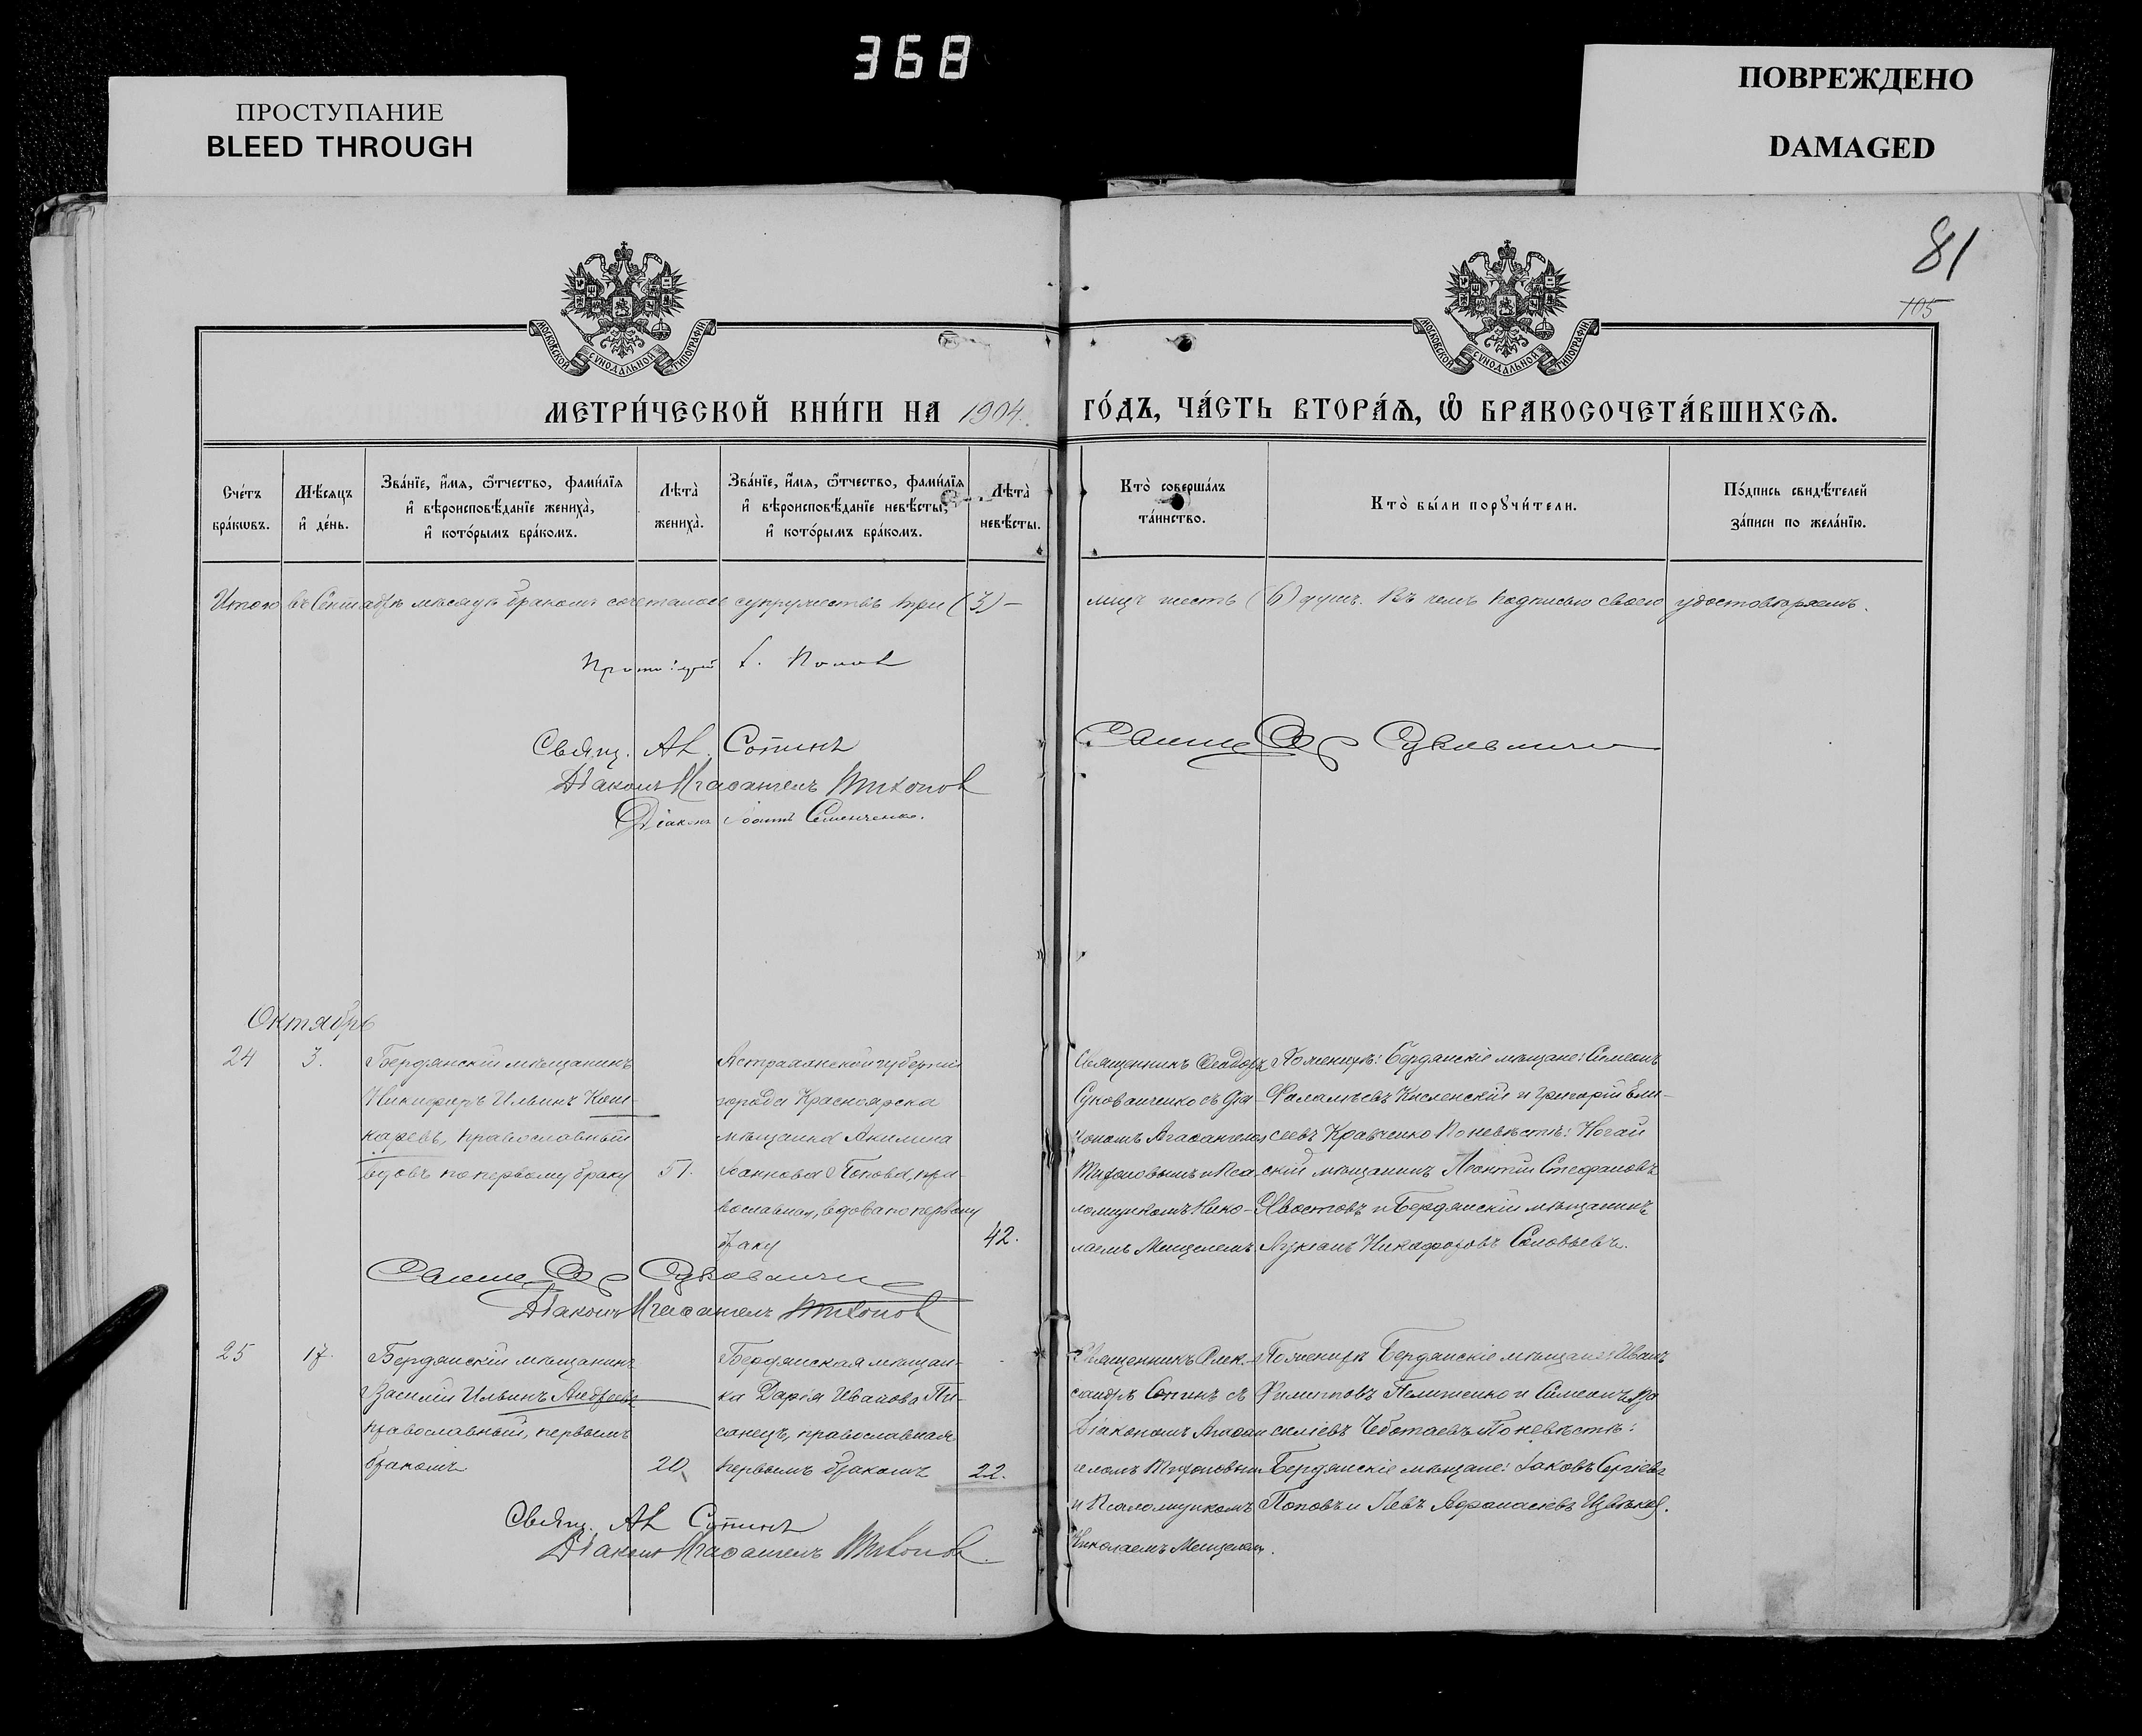 368
ПРОСТУПАНИЕ
BLEED THROUGH
ПОВРЕЖДЕНО
DAMAGED
81
105
МОСКОВСКОЙ СѴНОДАЛЬНОЙ ТИПОГРАФІИ
МОСКОВСКОЙ СѴНОДАЛЬНОЙ ТИПОГРАФІИ
МЕТРИ́ЧЕСКОЙ КНИ́ГИ НА 1904. ГО́ДЪ, ЧА́СТЬ ВТОРА́Ѧ, Ѡ҆ БРАКОСОЧЕТА́ВШИХСѦ.
Сче́тъ
бра́кѡвъ.
Мѣ́сѧцъ
и҆ де́нь.
Зва́нїе, и҆́мѧ, ѻ҆́тчество, фами́лїѧ
и҆ вѣроисповѣ́данїе жениха̀,
и҆ кото́рымъ бра́комъ.
Лѣта̀
жениха̀.
Зва́нїе, и҆́мѧ, ѻ҆́тчество, фами́лїѧ
и҆ вѣроисповѣ́данїе невѣ́сты,
и҆ кото́рымъ бра́комъ.
Лѣта̀
невѣ́сты.
Кто̀ соверша́лъ
та́инство.
Кто̀ бы́ли порꙋчи́тели.
По́дпись свидѣ́телей
за́писи по жела́нїю.
Итого въ Сентябрѣ мѣсяцѣ бракомъ сочеталось супружествъ три (3) — лицъ шесть (6) душъ. Въ чемъ подписью своею удостовѣряемъ.
Попов
Свящ. Ал. Сопинъ
Діаконъ Агаѳангелъ Тихонов
Діаконъ Іоаннъ Семенченко.
Октябрь
24
3.
Бердянскій мѣщанинъ
Никифоръ Ильинъ Кош-
каревъ, православный
вдовъ по первому браку
51.
Астраханской губерніи
города Красноярска
мѣщанка Акилина
Іоаннова Попова, пра-
вославная, вдова по первому
браку
42.
Священникъ Ѳеодоръ
Суковаченко съ діа-
кономъ Агаѳангеломъ
Тихоновымъ и Пса-
ломщикомъ Нико-
лаемъ Мещелемъ.
По женихѣ: Бердянскіе мѣщане: Симеонъ
Кисленскій и Григорій Ели-
сеевъ Кравченко По невѣстѣ: Ногай
скій мѣщанинъ Леонтій Стефановъ
Хвостовъ и Бердянскій мѣщанинъ
Лукіанъ Никифоровъ Соловьевъ.
Діаконъ Агаѳангелъ Тихонов
25
17.
Бердянскій мѣщанинъ
Василій Ильинъ Андреевъ
православный, первымъ
бракомъ
20.
Бердянская мѣщан-
ка Дарія Иванова Пи-
санецъ, православная
первымъ бракомъ
22.
Священникъ Алек-
сандръ Сопинъ съ
Діакономъ Агаѳан
геломъ Тихоновымъ
и Псаломщикомъ
Николаемъ Мещелемъ.
По женихѣ Бердянскіе мѣщане: Иванъ
Филипповъ Пелипенко и Симеонъ Ва
силіевъ Чеботаевъ По невѣстѣ:
Бердянскіе мѣщане: Іаковъ Сергіевъ
Поповъ и Левъ Аѳанасіевъ
Свящ. Ал. Сопинъ
Діаконъ Агаѳангелъ Тихонов.